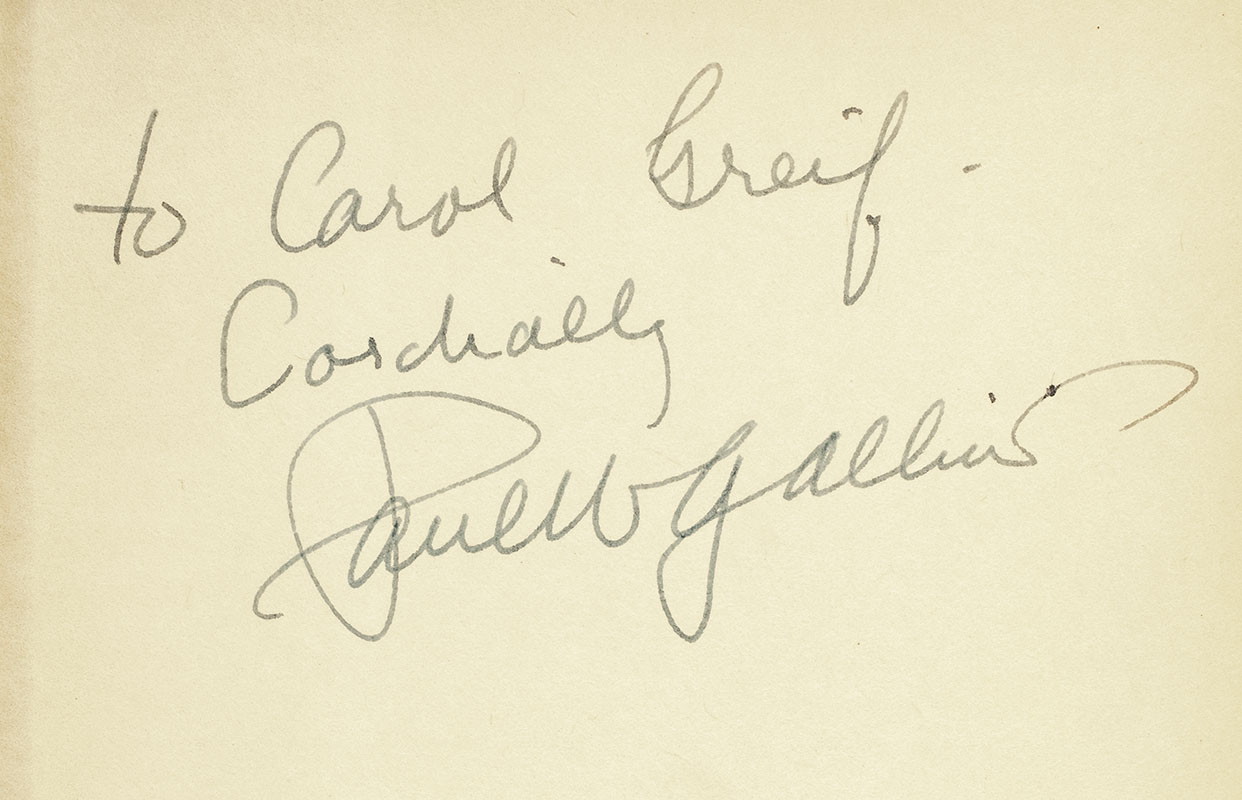 to Carol Greif -
Cordially
Paul W Gallico